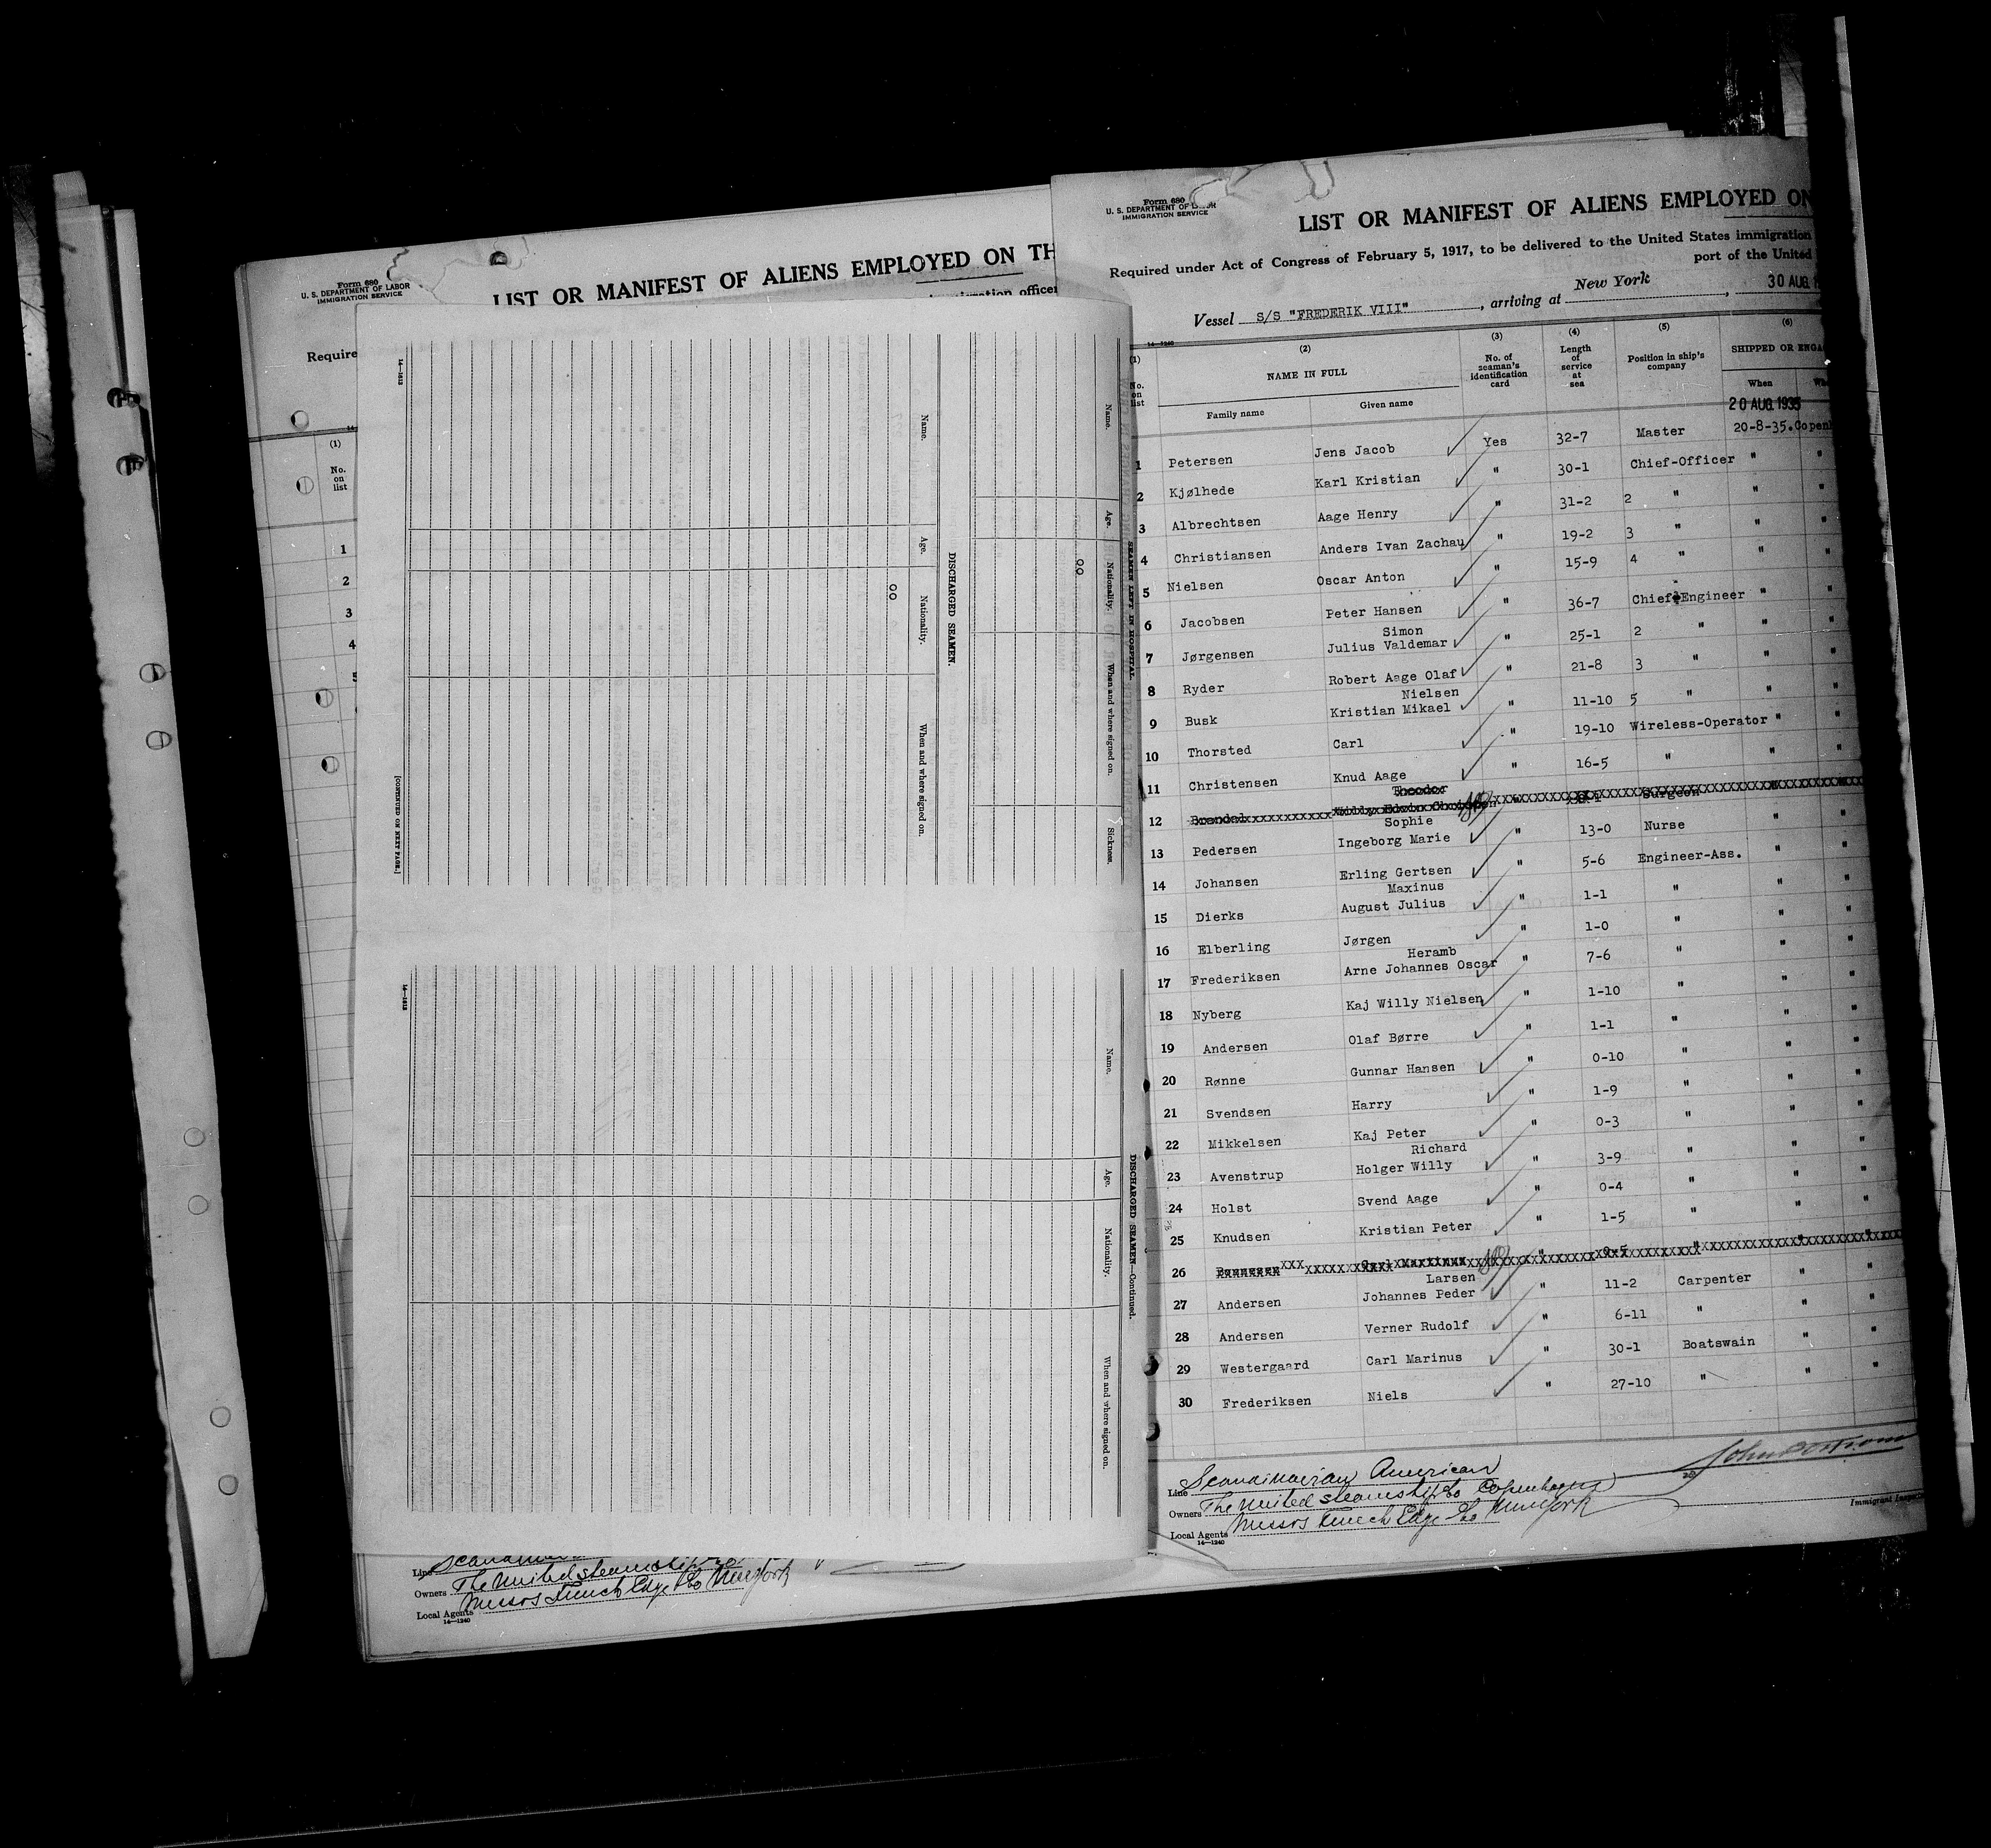 Form 680
U. S. DEPARTMENT OF LABOR
IMMIGRATION SERVICE
LIST OR MANIFEST OF ALIENS EMPLOYED ON TH
Require
(1)
No.
on
list
1
2
3
4
5
14—1813
Name.
Age.
Nationality.
When and where signed on.
[CONTINUED ON NEXT PAGE.]
DISCHARGED SEAMEN.
SEAMEN LEFT IN HOSPITAL
Name.
Age.
Nationality.
When and where signed on.
Sickness.
14—1813
DISCHARGED SEAMEN—Continued.
Name.
Age.
Nationality.
When and where signed on.
Line
Owners The United Steamship Co
Local Agents Messrs Funch Edye & Co New York
14—1240
Form 680
U. S. DEPARTMENT OF LABOR
IMMIGRATION SERVICE
LIST OR MANIFEST OF ALIENS EMPLOYED ON
Required under Act of Congress of February 5, 1917, to be delivered to the United States immigration
port of the United
Vessel S/S "FREDERIK VIII", arriving at New York, 30 AUG. 1
14—1240
(1) (2) (3) (4) (5) (6)
No. on list NAME IN FULL No. of seaman's identification card Length of service at sea Position in ship's company SHIPPED OR ENGA
Family name Given name When
20 AUG. 1935
1 Petersen Jens Jacob Yes 32-7 Master 20-8-35. Copenh
2 Kjølhede Karl Kristian " 30-1 Chief-Officer " "
3 Albrechtsen Aage Henry " 31-2 2 " " "
4 Christiansen Anders Ivan Zachau " 19-2 3 " " "
5 Nielsen Oscar Anton " 15-9 4 " " "
6 Jacobsen Peter Hansen " 36-7 Chief Engineer " "
Simon
7 Jørgensen Julius Valdemar " 25-1 2 " " "
8 Ryder Robert Aage Olaf " 21-8 3 " " "
Nielsen
9 Busk Kristian Mikael " 11-10 5 " " "
10 Thorsted Carl " 19-10 Wireless-Operator " "
11 Christensen Knud Aage " 16-5 " " "
Theodor
12 Surgeon
Sophie
13 Pedersen Ingeborg Marie " 13-0 Nurse " "
14 Johansen Erling Gertsen " 5-6 Engineer-Ass. " "
Maxinus
15 Dierks August Julius " 1-1 " " "
16 Elberling Jørgen " 1-0 " " "
Heramb
17 Frederiksen Arne Johannes Oscar " 7-6 " " "
18 Nyberg Kaj Willy Nielsen " 1-10 " " "
19 Andersen Olaf Børre " 1-1 " " "
20 Rønne Gunnar Hansen " 0-10 " " "
21 Svendsen Harry " 1-9 " " "
22 Mikkelsen Kaj Peter " 0-3 " " "
Richard
23 Avenstrup Holger Willy " 3-9 " " "
24 Holst Svend Aage " 0-4 " " "
25 Knudsen Kristian Peter " 1-5 " " "
26
Larsen
27 Andersen Johannes Peder " 11-2 Carpenter " "
28 Andersen Verner Rudolf " 6-11 " " "
29 Westergaard Carl Marinus " 30-1 Boatswain " "
30 Frederiksen Niels " 27-10 " " "
Line Scandinavian American
Owners The United Steamship Co Copenhagen
Local Agents Messrs Funch Edye & Co New York
14—1240
Immigrant Inspec